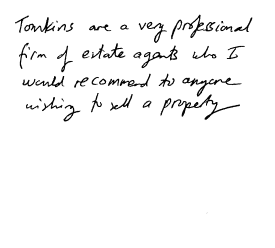 Tomkins are a very professional
firm of estate agents who I
would recommend to anyone
wishing to sell a property